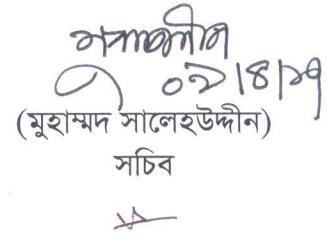 ০২/৪/১৭
(মুহাম্মদ সালেহউদ্দীন)
সচিব